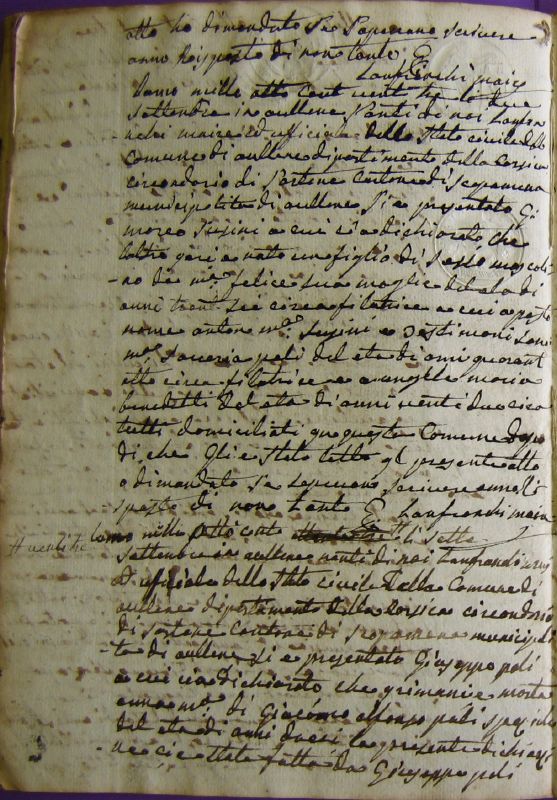 atto ho dimandato Se Sapevano scrivere
anno Risposto di non tanto
Lanfranchi maire
lanno mille otto cent vent tre li due
Settembre in aullene Vanti di noi Lanfran
chi maire ed ufficiale dello Stato civile della
Comune di aullene dipartimento della Corsica
circondario di Sartene Cantone di Scopamena
municipalita di aullene Si e presentato Gi
Susini a cui ci a dichiarato che
nato un figlio di Sesso mascoli
no da m.a felice sua moglie del eta di
anni trent. sei circa filatrice a cui a posto
nome anton m.a Susini e testimoni
m.a Saveria poli del eta di anni quarant
otto circa filatrice e evangelle maria
benedetti del eta di anni venti due circa
tutti domiciliati in questa Comune dopo
di che gli e Stato letto il presente atto
o dimandato Se Sapevano Scrivere anno Ri
sposto di non tanto Lanfranchi maire
# venti tre lanno mille otto cento li Sette
Settembre in aullene venti di noi Lanfranchi
ed ufficiale dello Stato civile della Comune di
aullene dipartimento della Corsica circondario
di Sartene Cantone di Scopamena municipali
ta di aullene Si e presentato Giuseppe poli
a cui ci a dichiarato che e morta
anna m.a di Giacomo alfonso poli
del eta di anni dieci la presente dichiara
ne ci e stata fatta da Giuseppe poli